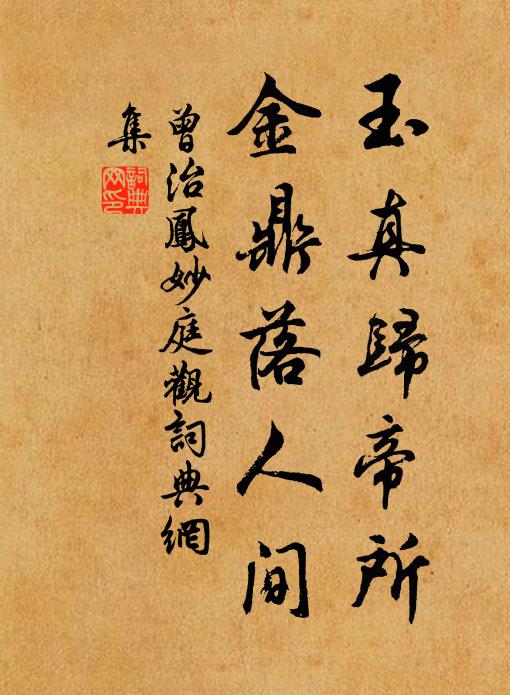 玉真歸帝所
金鼎落人间
曾治鳳妙庭觀詞典網
集
詞典网印